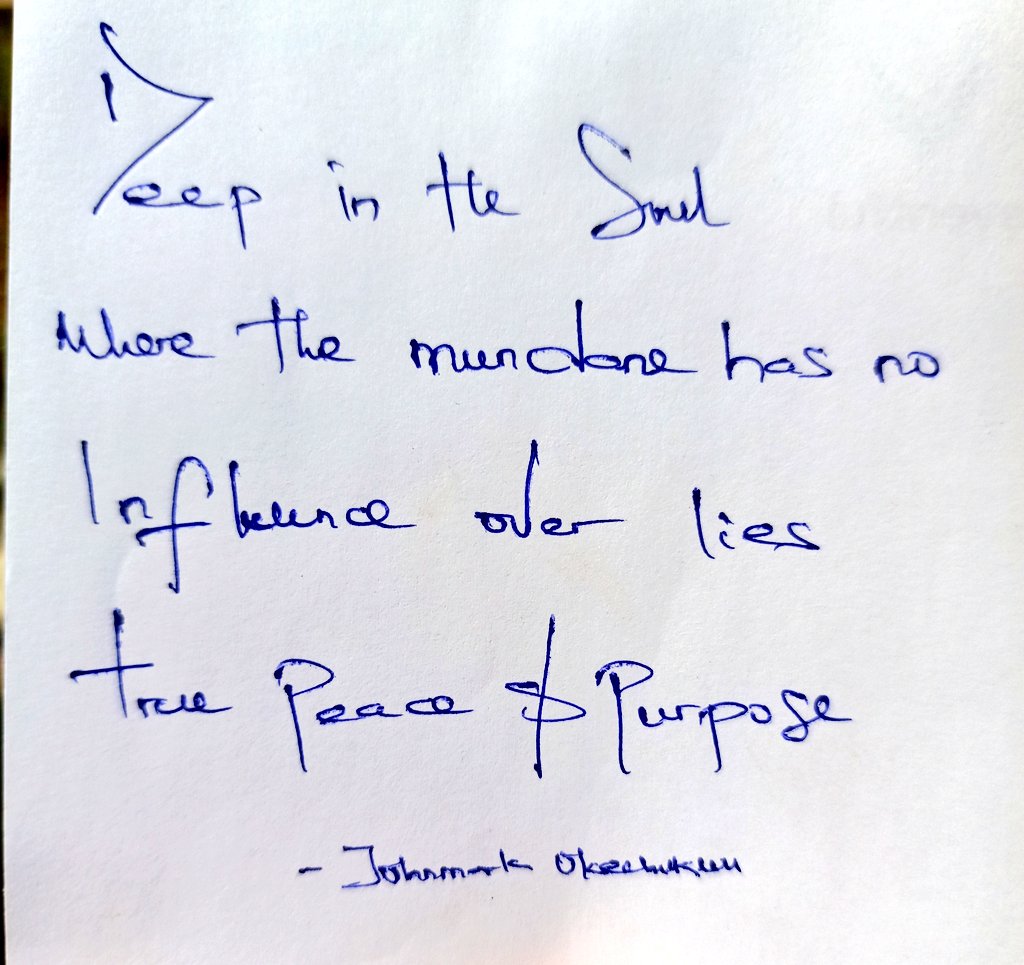 Deep in the Soul
Where the mundane has no
Influence over lies
True Peace & Purpose
- Johnmark Okechukwu